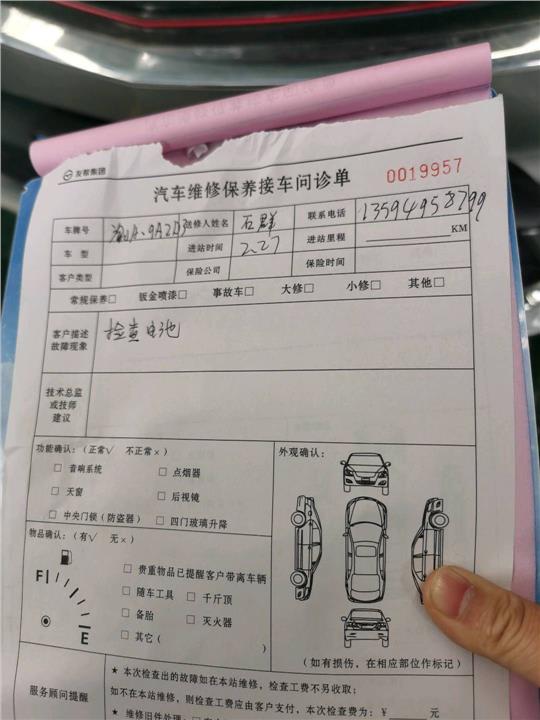 友帮集团
汽车维修保养接车问诊单 0019957
车牌号 送修人姓名 石群 联系电话 13594958799
车 型 进站时间 2.27 进站里程 KM
客户类型 保险公司 保险时间
常规保养□ 钣金喷漆□ 事故车□ 大修□ 小修□ 其他□
客户描述
故障现象
检查电池
技术总监
或技师
建议
功能确认：（正常√ 不正常×）
□ 音响系统 □ 点烟器
□ 天窗 □ 后视镜
□ 中央门锁（防盗器） □ 四门玻璃升降
外观确认：
物品确认：（有√ 无×）
F
E
□ 贵重物品已提醒客户带离车辆
□ 随车工具 □ 千斤顶
□ 备胎 □ 灭火器
□ 其它（ ）
（如有损伤，在相应部位作标记）
服务顾问提醒
★ 本次检查出的故障如在本站维修，检查工费不另收取；
如不在本站维修，则检查工费应由客户支付，本次检查费为：¥ 元
★ 维修旧件处理：